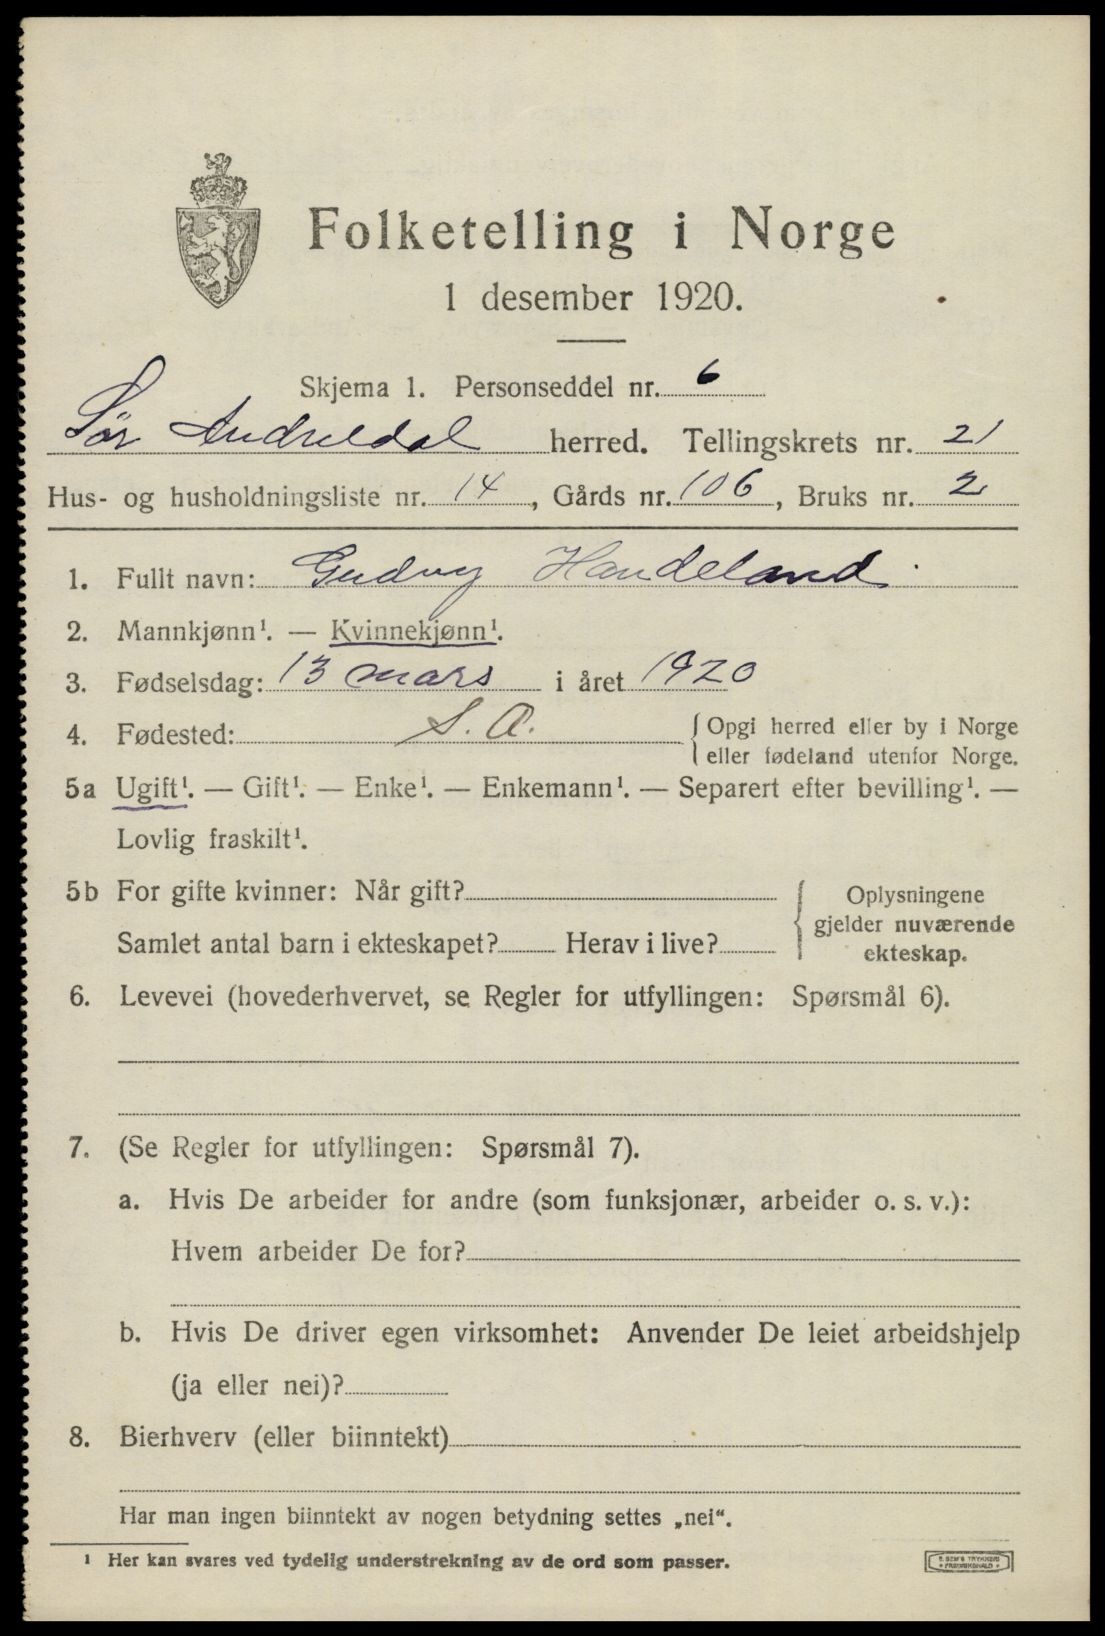 Folketelling i Norge
1 desember 1920.
Skjema 1. Personseddel nr. 6
Sør Audnedal herred. Tellingskrets nr. 21
Hus- og husholdningsliste nr. 14, Gårds nr. 106, Bruks nr. 2
1. Fullt navn: Gudny Haudeland
2. Mannkjønn¹. — Kvinnekjønn¹.
3. Fødselsdag: 13 mars i året 1920
4. Fødested: S. A. { Opgi herred eller by i Norge
eller fødeland utenfor Norge.
5a Ugift¹. — Gift¹. — Enke¹. — Enkemann¹. — Separert efter bevilling¹. —
Lovlig fraskilt¹.
5b For gifte kvinner: Når gift? { Oplysningene
gjelder nuværende
Samlet antal barn i ekteskapet? Herav i live? ekteskap.
6. Levevei (hovederhvervet, se Regler for utfyllingen: Spørsmål 6).
7. (Se Regler for utfyllingen: Spørsmål 7).
a. Hvis De arbeider for andre (som funksjonær, arbeider o. s. v.):
Hvem arbeider De for?
b. Hvis De driver egen virksomhet: Anvender De leiet arbeidshjelp
(ja eller nei)?
8. Bierhverv (eller biinntekt)
Har man ingen biinntekt av nogen betydning settes „nei“.
¹ Her kan svares ved tydelig understrekning av de ord som passer.